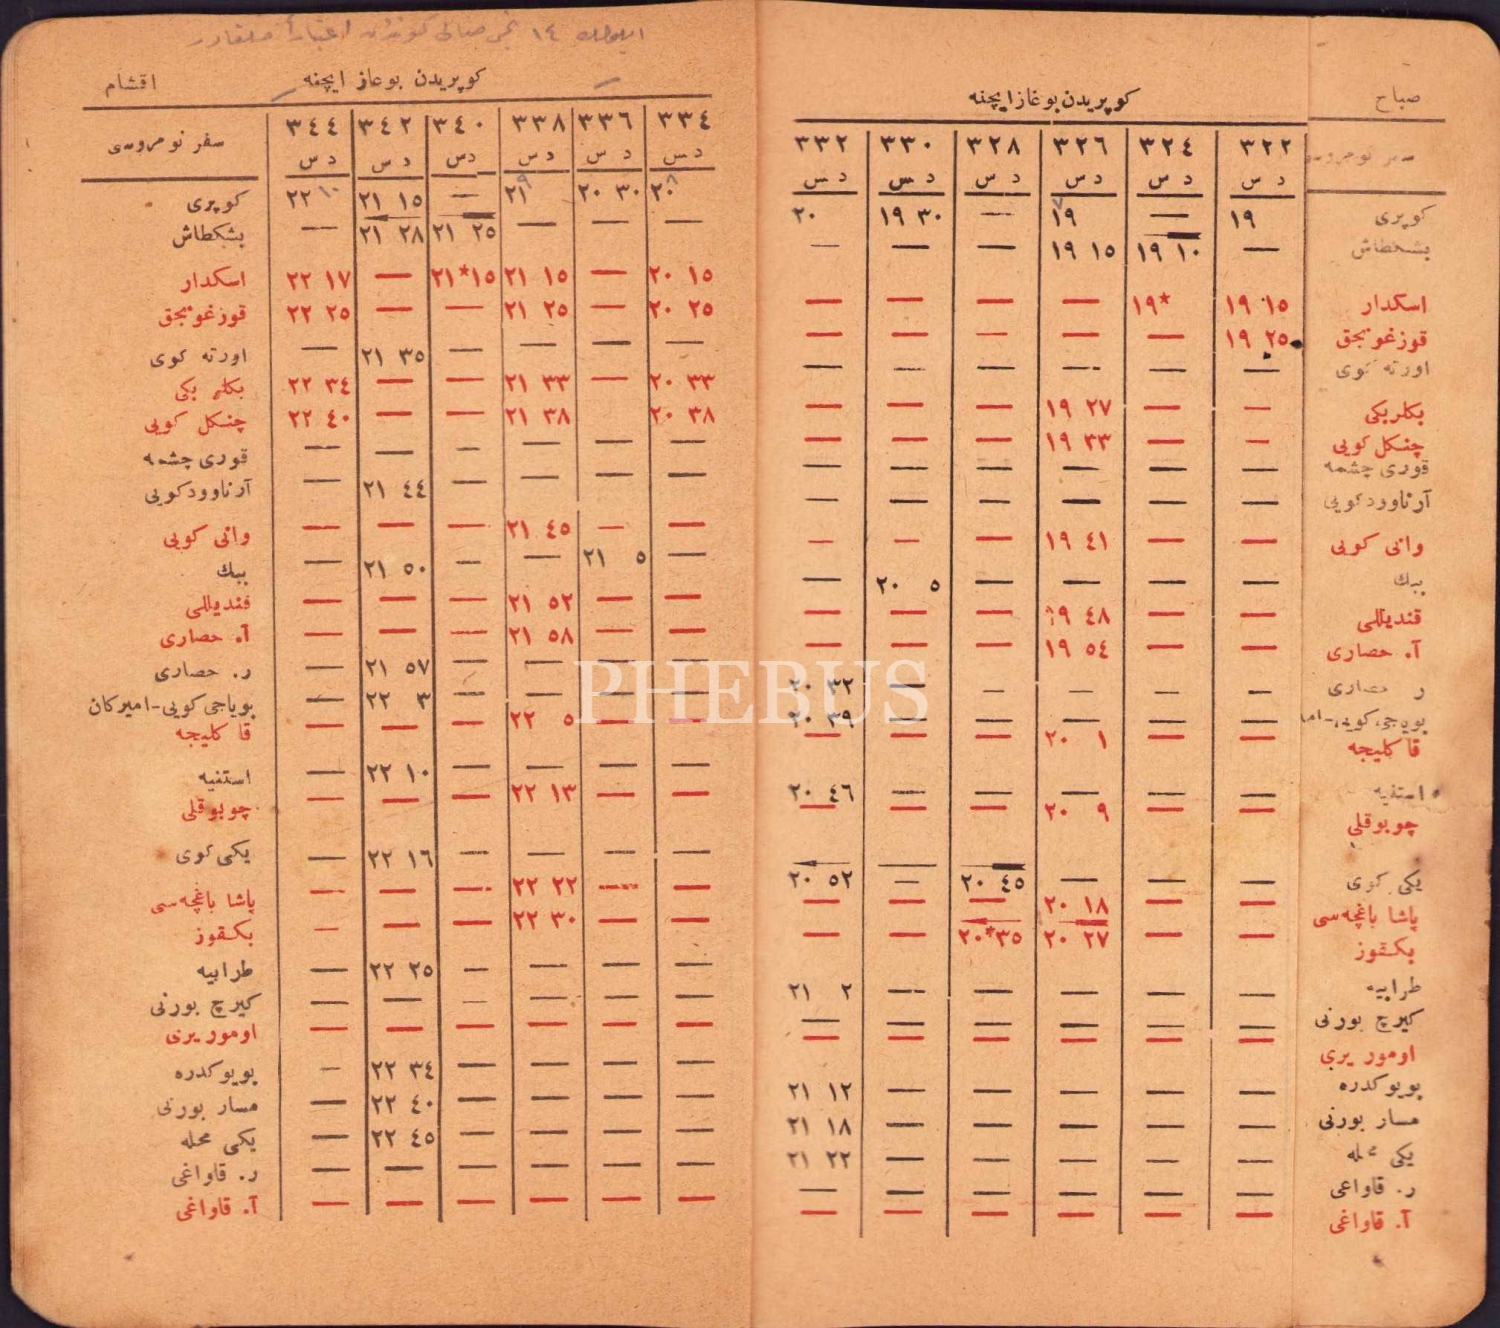 صباح
كوپريدن بوغاز ايچنه
سفر نومروسى ٣٢٢ ٣٢٤ ٣٢٦ ٣٢٨ ٣٣٠ ٣٣٢
د س د س د س د س د س د س
كوپرى ١٩ — ١٩ — ١٩ ٣٠ ٢٠
بشكطاش — ١٩ ١٠ ١٩ ١٥ — — —
اسكدار ١٩ ١٥ ١٩* — — — —
قوزغونجق ١٩ ٢٥ — — — — —
اورته كوى — — — — — —
بكلربكى — — ١٩ ٢٧ — — —
چنكل كويى — — ١٩ ٣٣ — — —
قورى چشمه — — — — — —
آرناوود كويى — — — — — —
وانى كويى — — ١٩ ٤١ — — —
ببك — — — — ٢٠ ٥ —
قنديللى — — ١٩ ٤٨ — — —
آ. حصارى — — ١٩ ٥٤ — — —
ر. حصارى — — — — — ٢٠ ٣٢
بوياجى كويى - ام — — — — — ٢٠ ٣٩
قاكليجه — — ٢٠ ١ — — —
استنيه — — — — — ٢٠ ٤٦
چوبوقلى — — ٢٠ ٩ — — —
يكى كوى — — — ٢٠ ٤٥ — ٢٠ ٥٢
پاشا باغچه سى — — ٢٠ ١٨ — — —
بكقوز — — ٢٠ ٢٧ ٢٠*٣٥ — —
طرابيه — — — — — ٢١ ٢
كيرچ بورنى — — — — — —
اومور يرى — — — — — —
بويوكدره — — — — — ٢١ ١٢
مسار بورنى — — — — — ٢١ ١٨
يكى محله — — — — — ٢١ ٢٢
ر. قاواغى — — — — — —
آ. قاواغى — — — — — —
ايلولك ١٤ نجى كوندن اعتباراً
كوپريدن بوغاز ايچنه
اقشام
٣٣٤ ٣٣٦ ٣٣٨ ٣٤٠ ٣٤٢ ٣٤٤ سفر نومروسى
د س د س د س د س د س د س
٢٠ ٨ ٢٠ ٣٠ ٢١ ٩ — ٢١ ١٥ ٢٢ ١٠ كوپرى
— — — ٢١ ٢٥ ٢١ ٢٨ — بشكطاش
٢٠ ١٥ — ٢١ ١٥ ٢١*١٥ — ٢٢ ١٧ اسكدار
٢٠ ٢٥ — ٢١ ٢٥ — — ٢٢ ٢٥ قوزغونجق
— — — — ٢١ ٣٥ — اورته كوى
٢٠ ٣٣ — ٢١ ٣٣ — — ٢٢ ٣٤ بكلر بكى
٢٠ ٣٨ — ٢١ ٣٨ — — ٢٢ ٤٠ چنكل كويى
— — — — — — قورى چشمه
— — — — ٢١ ٤٤ — آرناوود كويى
— — ٢١ ٤٥ — — — وانى كويى
— ٢١ ٥ — — ٢١ ٥٠ — ببك
— — ٢١ ٥٢ — — — قنديللى
— — ٢١ ٥٨ — — — آ. حصارى
— — — — ٢١ ٥٧ — ر. حصارى
— — — — ٢٢ ٣ — بوياجى كويى - اميركان
— — ٢٢ ٥ — — — قاكليجه
— — — — ٢٢ ١٠ — استنيه
— — ٢٢ ١٣ — — — چوبوقلى
— — — — ٢٢ ١٦ — يكى كوى
— — ٢٢ ٢٢ — — — پاشا باغچه سى
— — ٢٢ ٣٠ — — — بكقوز
— — — — ٢٢ ٢٥ — طرابيه
— — — — — — كيرچ بورنى
— — — — — — اومور يرى
— — — — ٢٢ ٣٤ — بويوكدره
— — — — ٢٢ ٤٠ — مسار بورنى
— — — — ٢٢ ٤٥ — يكى محله
— — — — — — ر. قاواغى
— — — — — — آ. قاواغى
PHEBUS